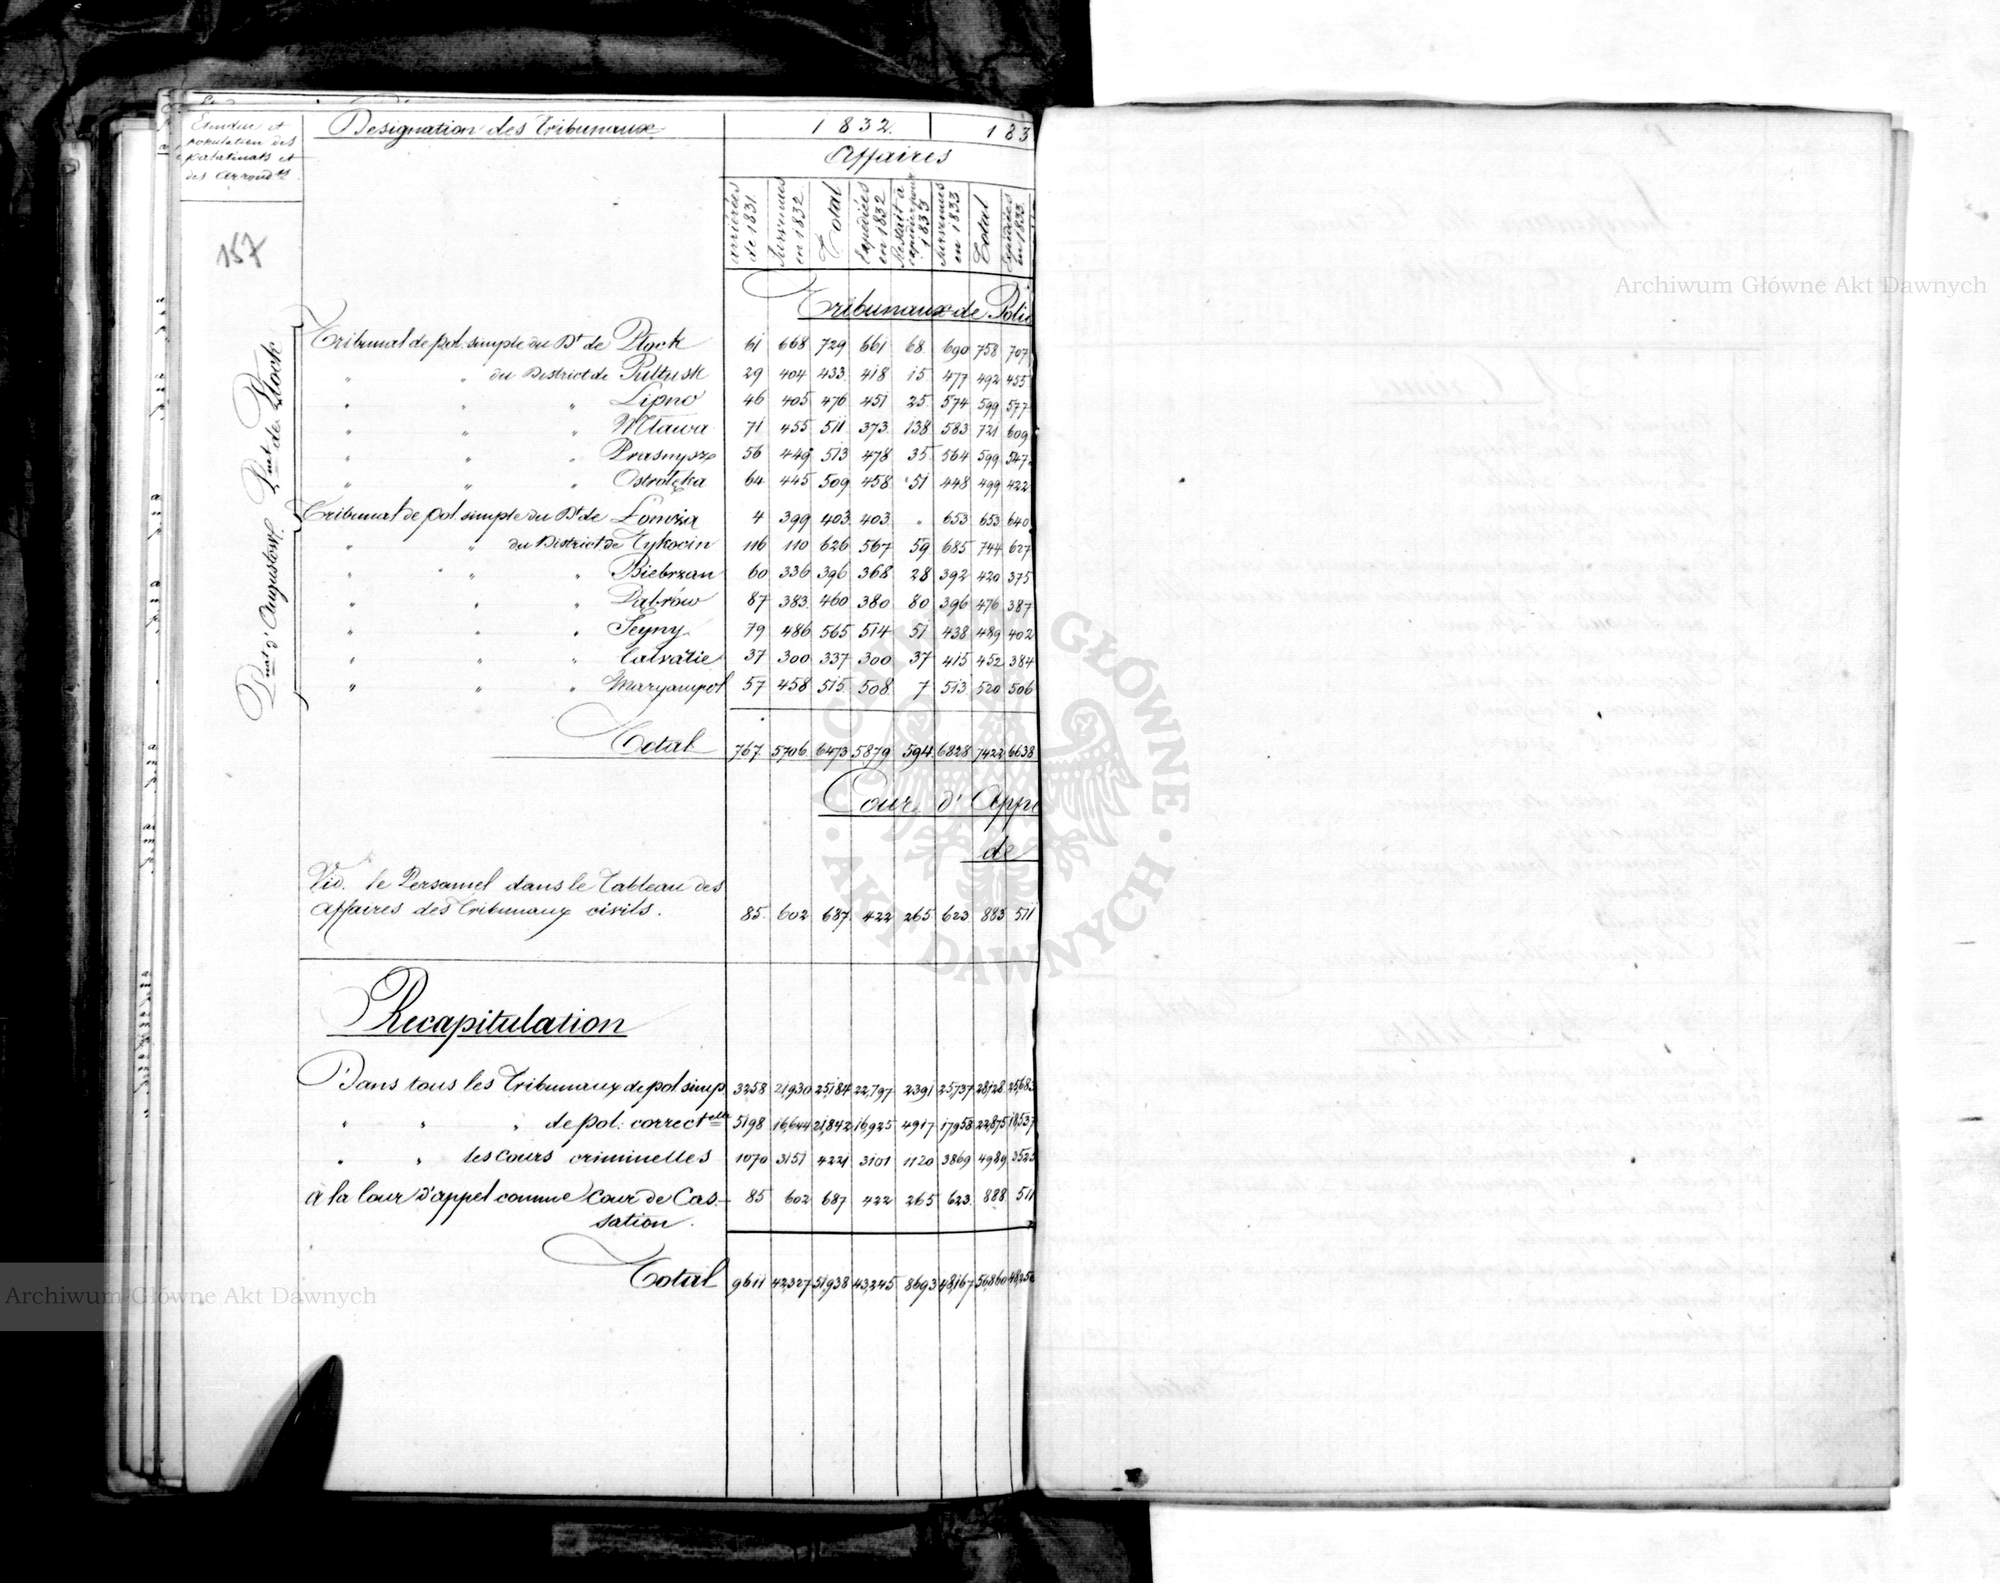 Etendue et
population des
palatinats et
des arrond.ts
Designation des Tribunaux
1832.
183
Affaires
arriérées de 1831
Survenues en 1832
Total
Expédiées en 1832
Restait à expédier pour 1833
Survenues en 1833
Total
Expédiées en 1833
157
Tribunaux de Polic
P.nat de Płock
Tribunal de pol. simple du D.t de Płock 61 668 729 661 68 690 758 707
" " du District de Pułtusk 29 404 433 418 15 477 492 455
" " " Lipno 46 405 476 451 25 574 599 577
" " " Mława 71 455 511 373 138 583 721 609
" " " Prasnysz 56 449 513 478 35 564 599 547
" " " Ostrołęka 64 445 509 458 51 448 499 422
P.nat d'Augustow
Tribunal de pol. simple du D.t de Łomża 4 399 403 403 " 653 653 640
" " du District de Tykocin 116 110 626 567 59 685 744 627
" " " Biebrzan 60 336 396 368 28 392 420 375
" " " Dąbrów 87 383 460 380 80 396 476 387
" " " Seyny 79 486 565 514 51 438 489 402
" " " Calvarie 37 300 337 300 37 415 452 384
" " " Maryampol 57 458 515 508 7 513 520 506
Total 767 5706 6473 5879 594 6828 7422 6638
Cour d'Appe
de
Vid. le Personnel dans le Tableau des
affaires des Tribunaux civils. 85 602 687 422 265 623 883 511
Recapitulation
Dans tous les Tribunaux de pol simp. 3258 21,930 25,184 22,797 2391 25,737 28,128 25,683
" " " de pol: correct.elle 5198 16,644 21,842 16,925 4917 17,958 22,875 18,537
" " les Cours criminelles 1070 3151 4221 3101 1120 3869 4989 3525
à la Cour d'appel comme Cour de Cas- 85 602 687 422 265 623 888 511
sation.
Total 9611 42,327 51,938 43,245 8693 48,167 56,860 48,256
Archiwum Główne Akt Dawnych
Archiwum Główne Akt Dawnych
ARCHIWUM GŁÓWNE · AKT DAWNYCH ·